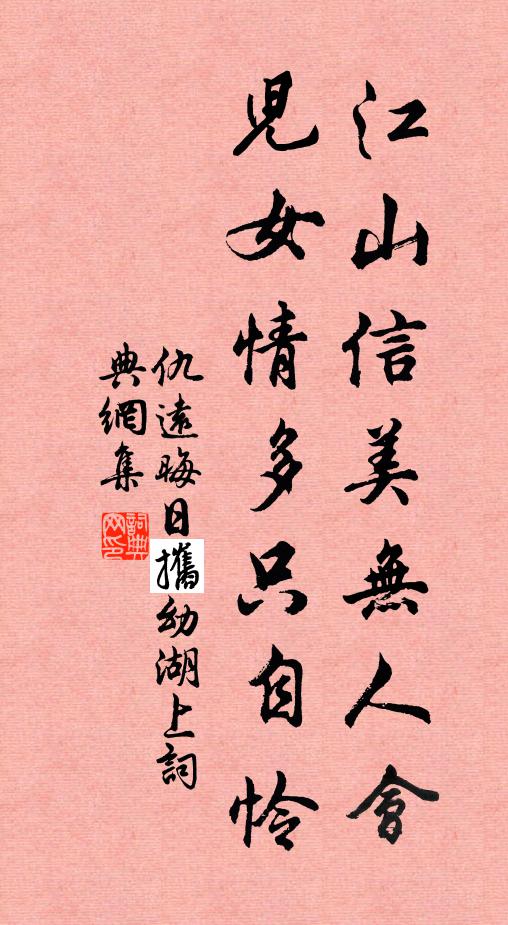 江山信美無人會
兒女情多只自怜
仇遠晦日攜幼湖上詞
典網集
詞典
网印